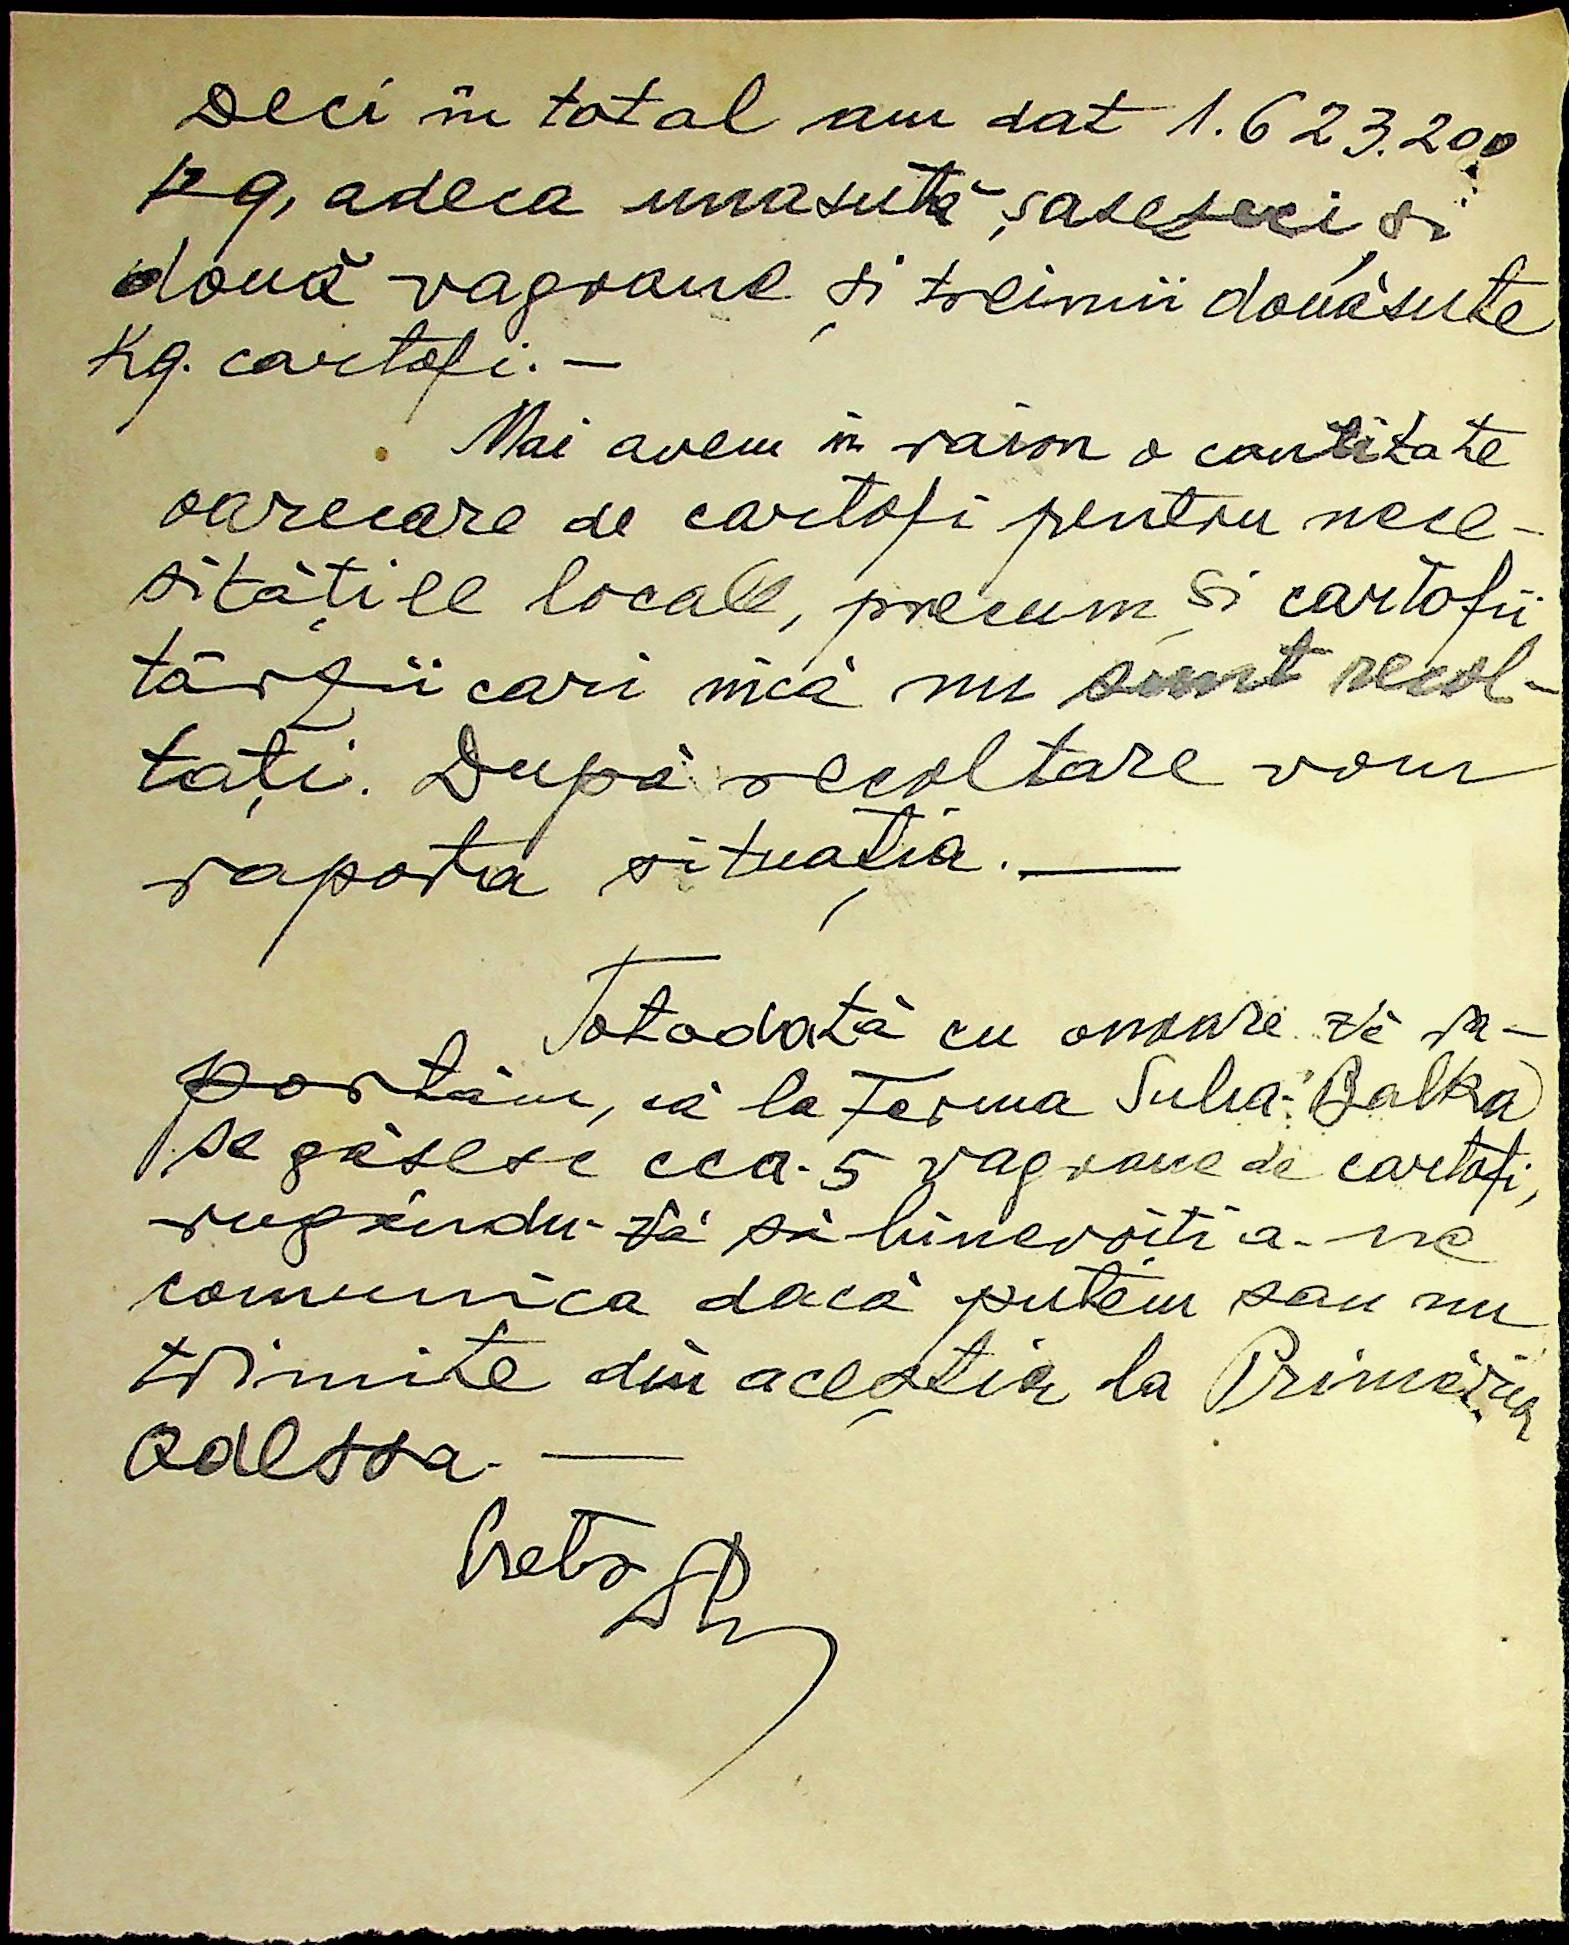 Deci în total am dat 1.623.200
kg, adeca unasută șasezeci și
două vagoane și treimii douăsute
Kg. cartofi. —
Mai avem în raion o cantitate
oarecare de cartofi pentru nece-
sitățile locale, precum și cartofii
târzii cari încă nu sunt recol-
tați. După recoltare vom
raporta situația. —
Totodată cu onoare vă ra-
portăm, că la Ferma Suha-Balka
se găsesc cca. 5 vagoane de cartofi,
rugându-vă să binevoiti a-ne
comunica dacă putem sau nu
trimite din aceștia la Primăria
Odessa. —